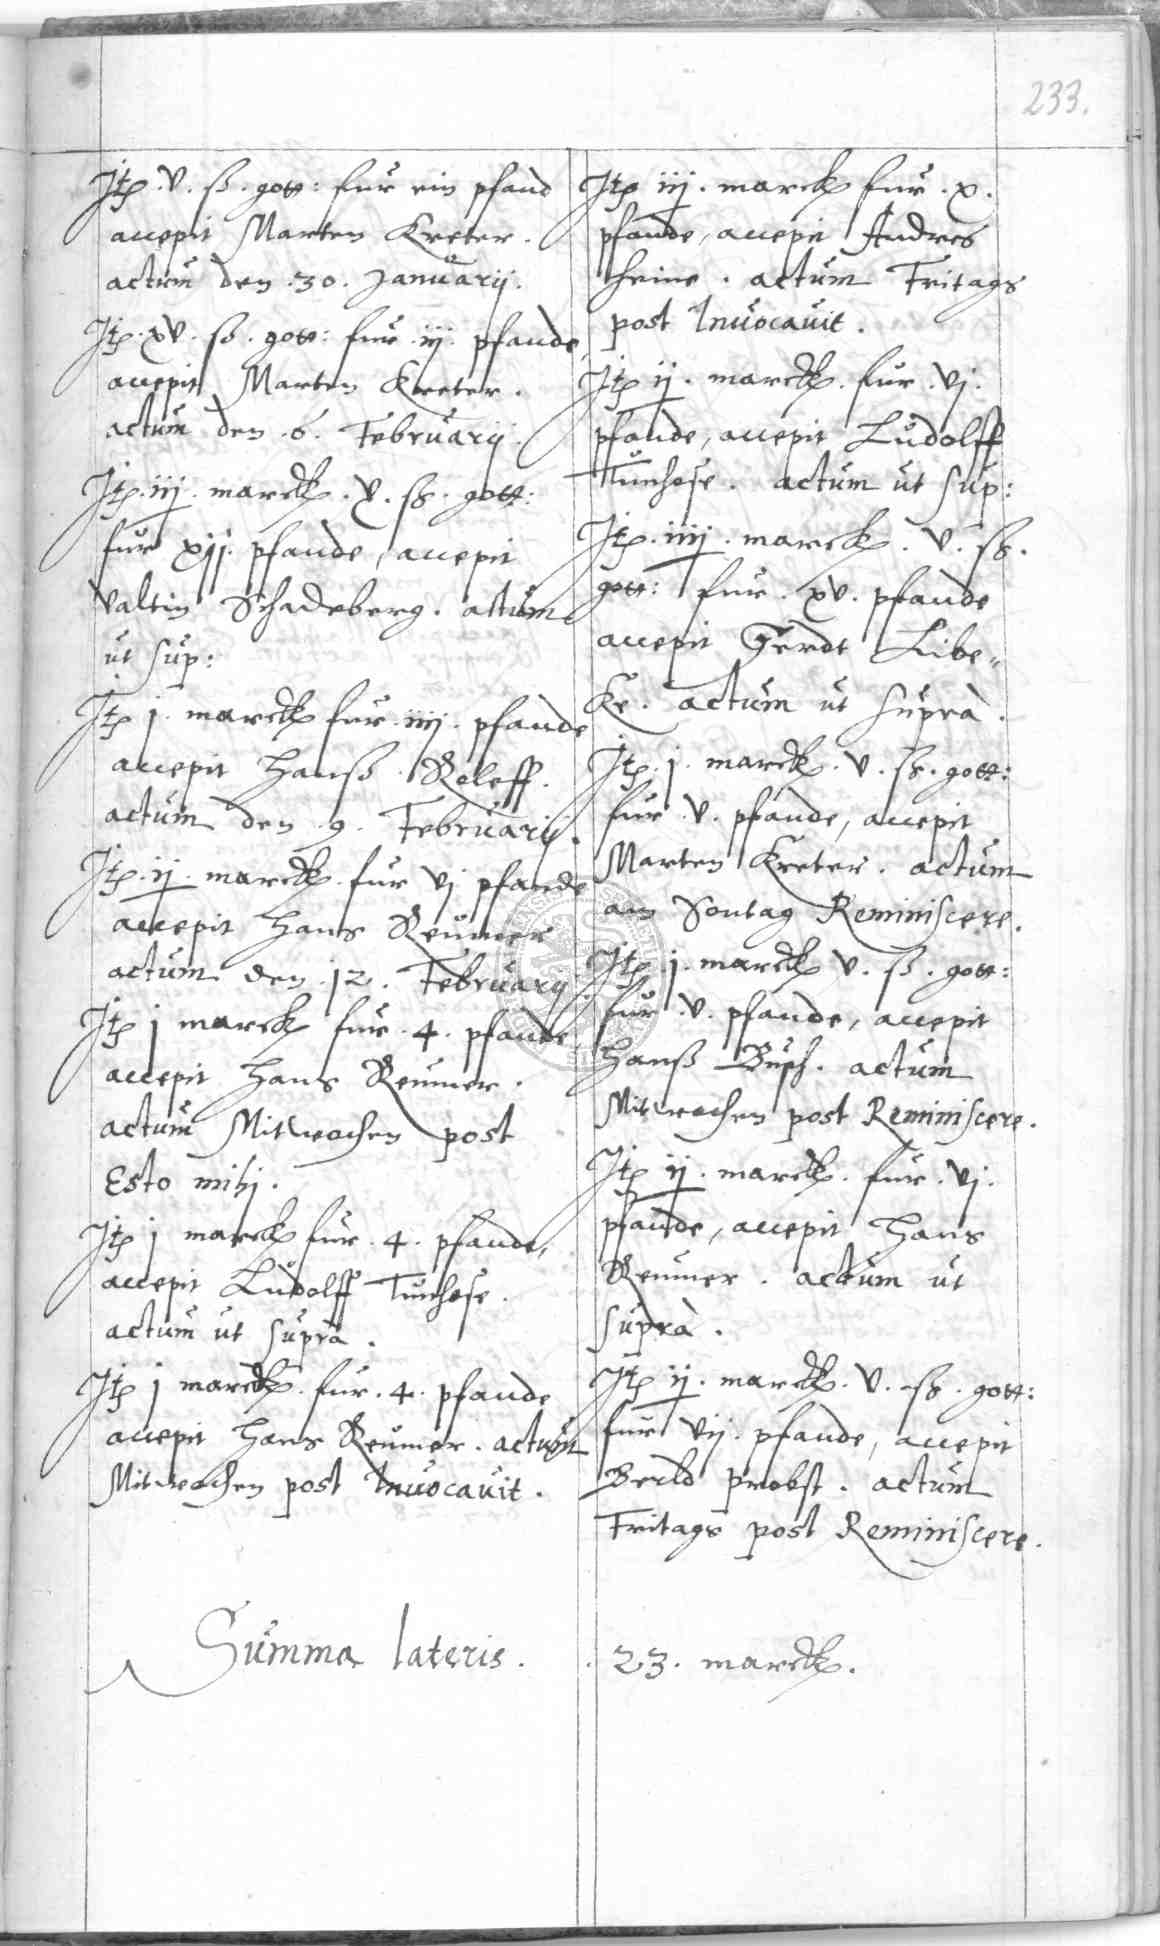 233.
Jtꝫ. v. ß. gott: fur ein pfand
accepit Marten Kreter.
actum den .30. Januarij.
Jtꝫ. xv. ß. gott: fur .iij. pfande
accepit Marten Kreter.
actum den .6. Februarij.
Jtꝫ. iij. marck. v. ß. gott:
fur xij. pfande, accepit
Valtin Schadeberg. actum
ut sup:
Jtꝫ j. marck fur .iiij. pfande
accepit Hanß Roleff.
actum den .9. Februarij.
Jtꝫ. ij. marck. fur vj pfande
accepit Hans Reumer
actum den .12. Februarij
Jtꝫ j marck fur .4. pfande
accepit Hans Reumer.
actum Mitwochen post
Esto mihj.
Jtꝫ j marck fur .4. pfande,
accepit Ludolff Tunhose.
actum ut supra.
Jtꝫ j marck. fur .4. pfande
accepit Hans Reumer. actum
Mitwochen post Invocavit.
Jtꝫ iij. marck fur .x.
pfande, accepit Andres
Heine. actum Fritags
post Invocavit.
Jtꝫ ij. marck. fur .vj.
pfande, accepit Ludolff
Tunhose. actum ut sup:
Jtꝫ. iiij. marck. v. ß.
gott: fur .xv. pfande
accepit Gerdt Libe„
ke. actum ut suprà.
Jtꝫ. j. marck. v. ß. gott:
fur .v. pfande, accepit
Marten Kreter. actum
am Sontag Reminiscere.
Jtꝫ. j. marck v. ß. gott:
fur .v. pfande, accepit
Hanß Busch. actum
Mitwochen post Reminiscere.
Jtꝫ ij. marck. fur .vj.
pfande, accepit Hans
Reumer. actum ut
suprà.
Jtꝫ ij. marck. v. ß. gott:
fur vij. pfande, accepit
Berld Probst. actum
Fritags post Reminiscere.
Summa lateris. . 23. marck.